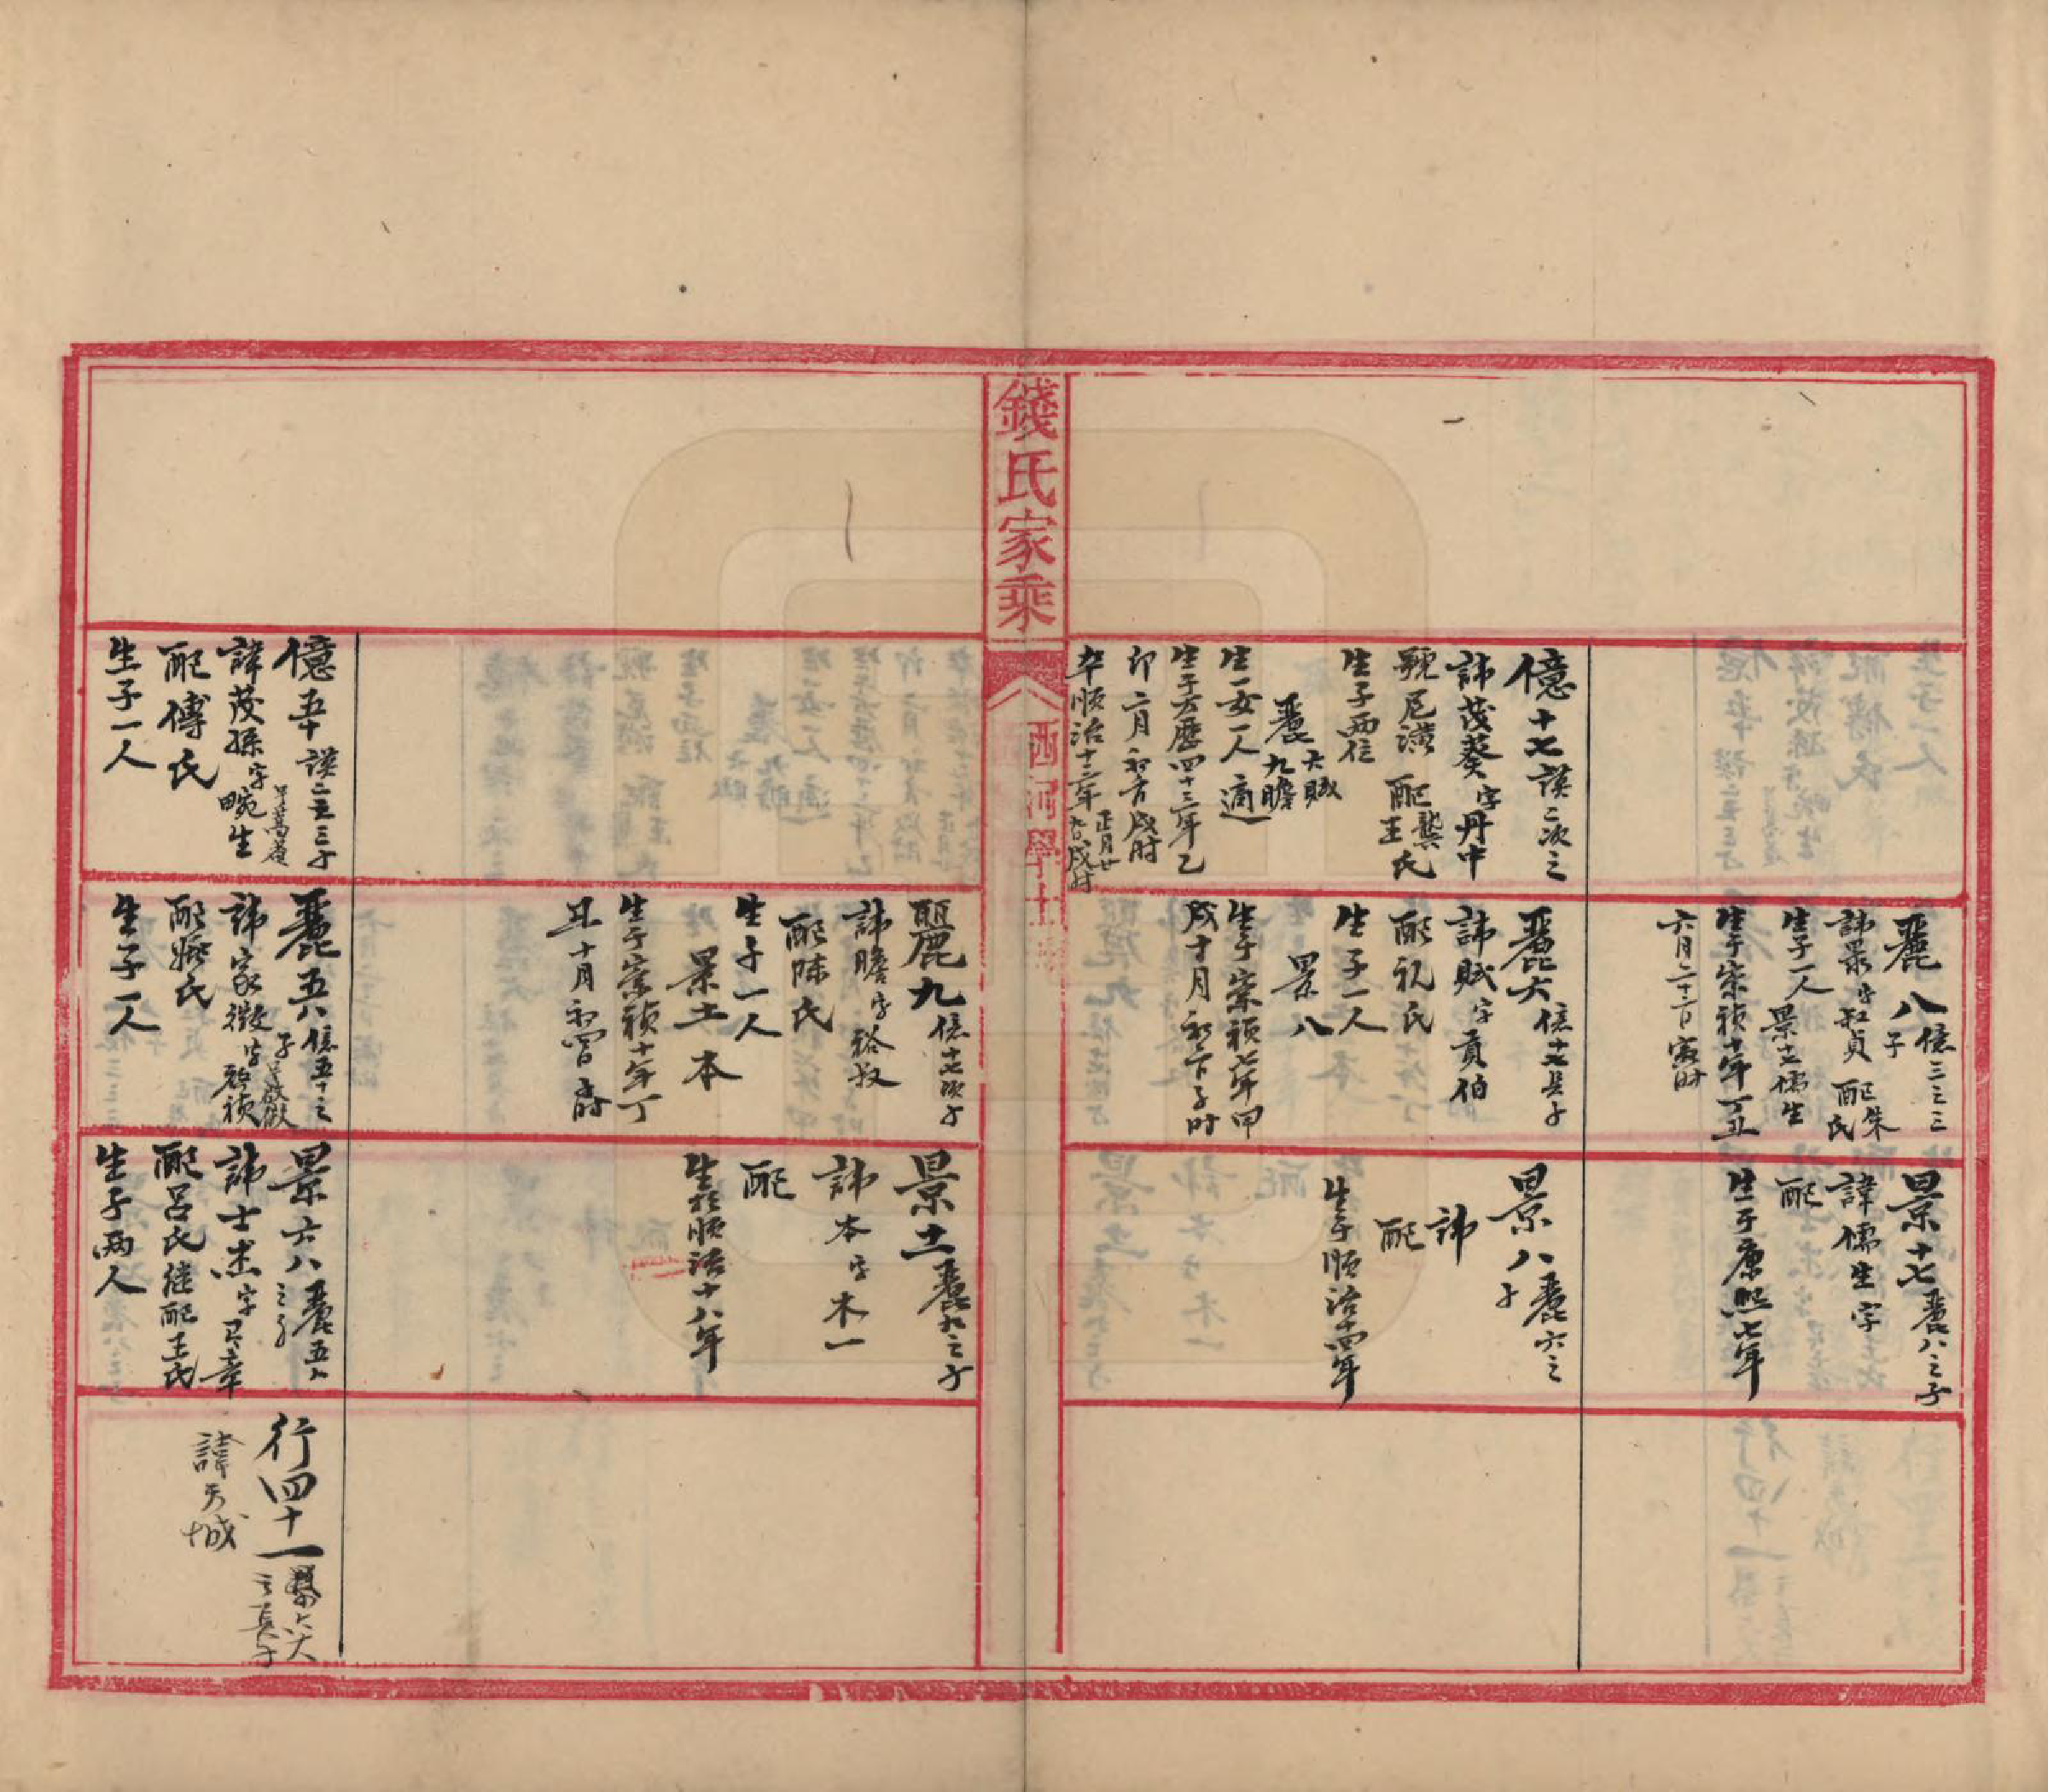 麗八億三三三
子
諱最字叔貞 配朱氏
生子一人 景十七儒生
生于崇禎十年丁丑
六月二十二日寅时
景十七麗八之子
諱儒生字
配
生于康熙七年
億十七謨二次之
諱茂葵字丹中
號尼溎 配龔王氏
生子两位
麗六賦九瞻
生一女一人適
生于万歷四十三年乙
卯二月初六日戌时
卒順治十三年正月廿九日戌时
麗六億十七長子
諱賦字貢伯
配祝氏
生子一人
景八
生于崇禎七年甲
戌十月初二日子时
景八麗六之
子
諱
配
生于順治十四年
錢氏家乘
西河學士
麗九億十七次子
諱瞻字裕叔
配陈氏
生子一人
景土 本
生于崇禎十年丁
丑十月初四日 时
景土麗九之子
諱本字木一
配
生於順治十八年
億五十謨二五三子
諱茂孫字畹生
号萬菴
配傅氏
生子一人
麗五八億五十之
子 号啟猷
諱家徵字啟禎
配姬氏
生子一人
景六八麗五八
之子
諱士杰字曰章
配呂氏继配王氏
生子两人
行四十一景六八
之長子
諱天城